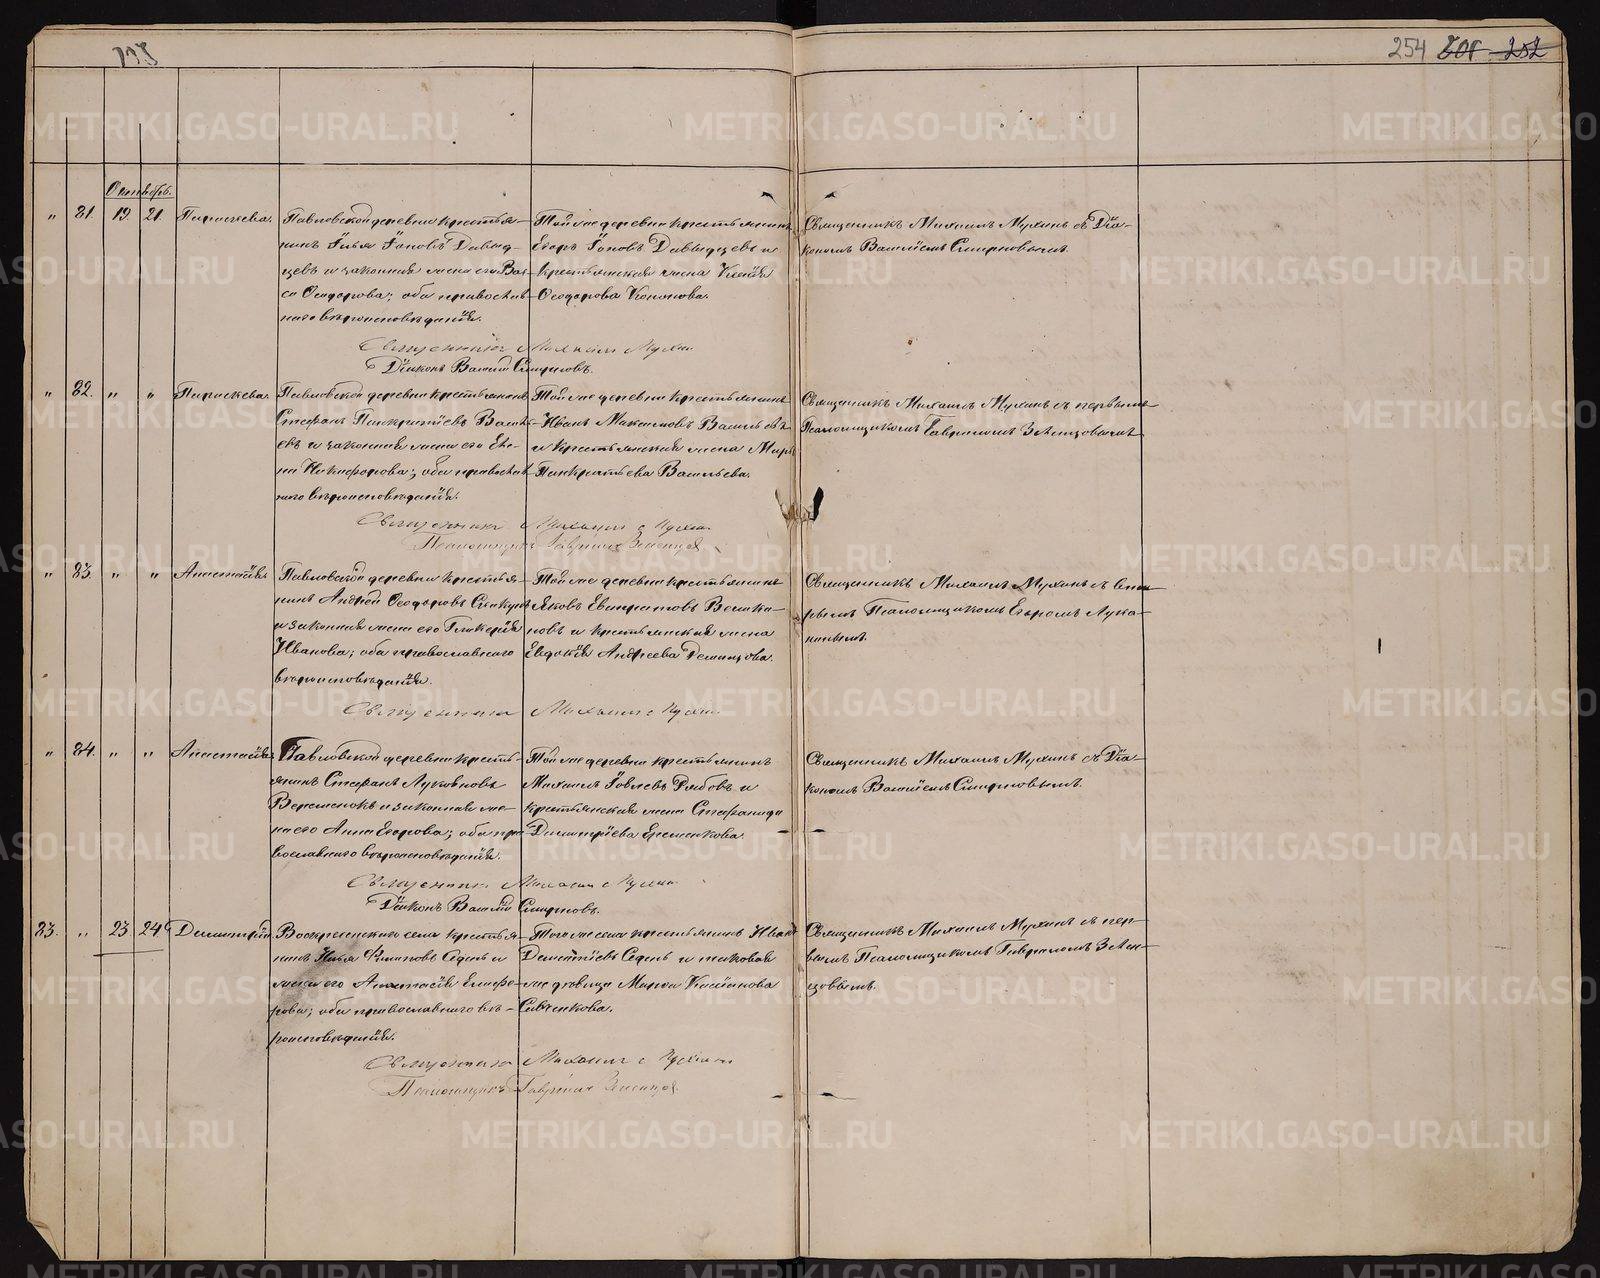 254
252
Октябрь.
" 81. 19. 21. Параскева.
Павловской деревни крестья-
нинъ Илья Іоновъ Давыд-
цевъ и законная жена его Вас-
са Ѳеодорова; оба православ-
наго вѣроисповѣданія.
Той же деревни крестьянинъ
Егоръ Іоновъ Давыдцевъ и
крестьянская жена Ксенія
Ѳеодорова Кононова.
Священникъ Михаилъ Мухинъ съ Діа-
кономъ Василіемъ Смирновымъ.
Священникъ Михаилъ Мухин
Діаконъ Василій Смирновъ.
" 82. " " Параскева.
Павловской деревни крестьянинъ
Стефанъ Панкратіевъ Василь-
евъ и законная жена его Еле-
на Никифорова; оба православ-
наго вѣроисповѣданія.
Той же деревни крестьянинъ
Иванъ Максимовъ Васильевъ
и крестьянская жена Марья
Панкратьева Васильева.
Священникъ Михаилъ Мухинъ съ первымъ
Псаломщикомъ Гавріиломъ Зеленцовымъ
Священникъ Михаилъ Мухин
Псаломщикъ Гавріилъ Зеленцов
" 83. " " Анастасія
Павловской деревни крестья-
нинъ Андрей Ѳеодоровъ
и законная жена его Гликерія
Иванова; оба православнаго
вѣроисповѣданія.
Той же деревни крестьянинъ
Яковъ Евстратовъ
и крестьянская жена
Евдокія Андреева
Священникъ Михаилъ Мухинъ съ
Псаломщикомъ Егоромъ Лука-
нинымъ.
Священникъ Михаилъ Мухин
" 84. " " Анастасія
Павловской деревни кресть-
янинъ Стефанъ Лукояновъ
и законная же-
на его Анна Егорова; оба пра-
вославнаго вѣроисповѣданія.
Той же деревни крестьянинъ
Михаилъ Іовлевъ Рябовъ и
крестьянская жена Стефанида
Димитріева Еременкова.
Священникъ Михаилъ Мухинъ съ Діа-
кономъ Василіемъ Смирновымъ.
Священникъ Михаилъ Мухин
Діаконъ Василій Смирновъ.
83. " 23 24 Димитрій
Воскресенскаго села крестья-
нинъ Илья Филиповъ Седень и
жена его Анастасія Елифе-
рова; оба православнаго вѣ-
роисповѣданія.
Того же села крестьянинъ Иванъ
Дементіевъ Седень и таковая
же вдовица Марья Касіанова
Савченкова.
Священникъ Михаилъ Мухинъ съ пер-
вымъ Псаломщикомъ Гавріиломъ Зелен-
цовымъ.
Священникъ Михаилъ Мухин
Псаломщикъ Гавріилъ Зеленцов
METRIKI.GASO-URAL.RU